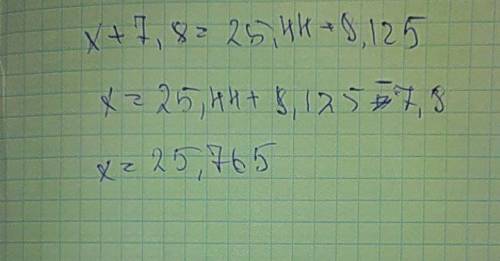 x+7,8=25,44+8,125
x=25,44+8,125-7,8
x=25,765